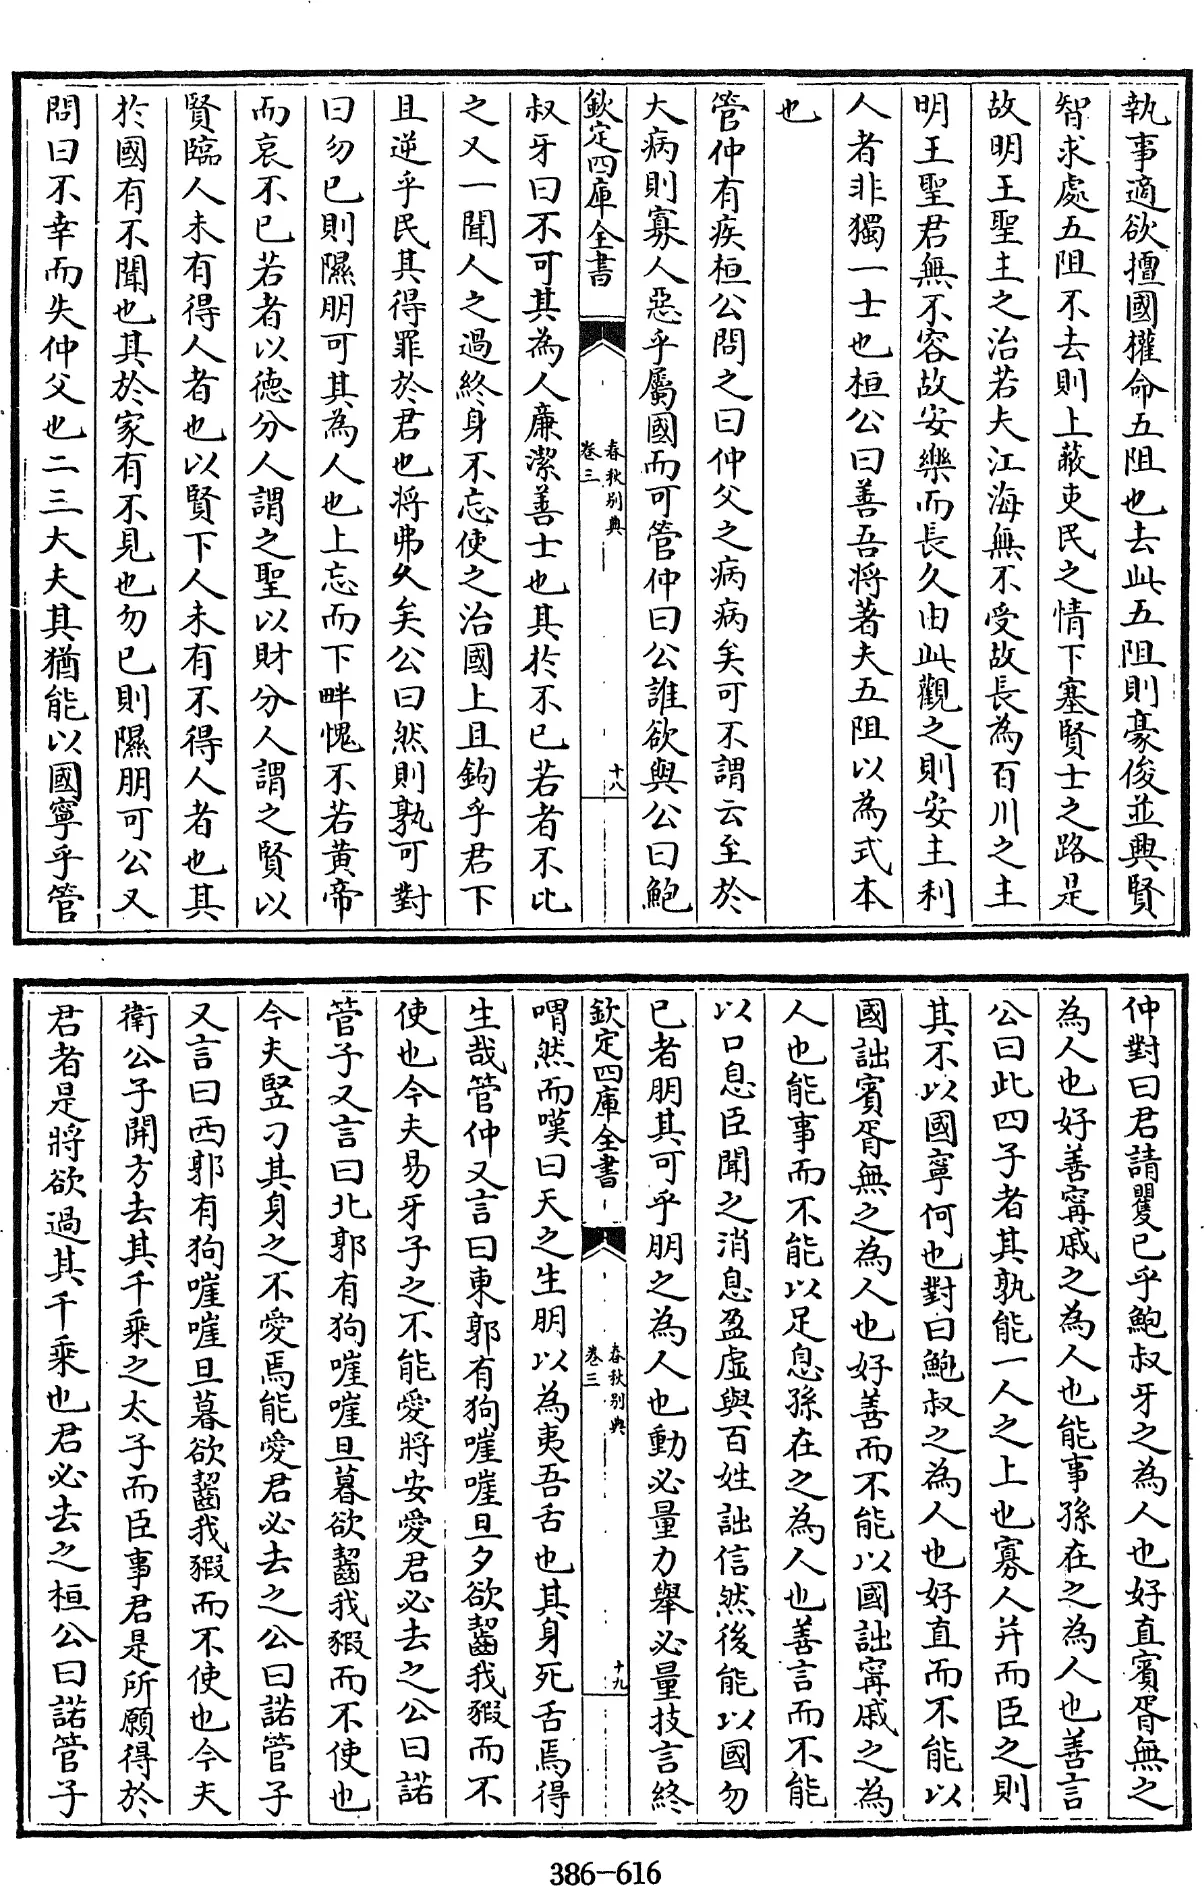 執事適欲擅國權命五阻也去此五阻則豪俊並興賢
智求處五阻不去則上蔽吏民之情下塞賢士之路是
故明王聖主之治若夫江海無不受故長為百川之主
明王聖君無不容故安樂而長久由此觀之則安主利
人者非獨一士也桓公曰善吾將著夫五阻以為式本
也
管仲有疾桓公問之曰仲父之病病矣可不謂云至於
大病則寡人惡乎屬國而可管仲曰公誰欲與公曰鮑
欽定四庫全書
春秋別典
卷三
十八
叔牙曰不可其為人廉潔善士也其於不已若者不比
之又一聞人之過終身不忘使之治國上且鉤乎君下
且逆乎民其得罪於君也將弗久矣公曰然則孰可對
曰勿已則隰朋可其為人也上忘而下畔愧不若黃帝
而哀不已若者以德分人謂之聖以財分人謂之賢以
賢臨人未有得人者也以賢下人未有不得人者也其
於國有不聞也其於家有不見也勿已則隰朋可公又
問曰不幸而失仲父也二三大夫其猶能以國寧乎管
仲對曰君請矍已乎鮑叔牙之為人也好直賓胥無之
為人也好善甯戚之為人也能事孫在之為人也善言
公曰此四子者其孰能一人之上也寡人并而臣之則
其不以國寧何也對曰鮑叔之為人也好直而不能以
國詘賓胥無之為人也好善而不能以國詘甯戚之為
人也能事而不能以足息孫在之為人也善言而不能
以口息臣聞之消息盈虛與百姓詘信然後能以國勿
已者朋其可乎朋之為人也動必量力舉必量技言終
欽定四庫全書
春秋別典
卷三
十九
喟然而嘆曰天之生朋以為夷吾舌也其身死舌焉得
生哉管仲又言曰東郭有狗嘊嘊旦夕欲齧我猳而不
使也今夫易牙子之不能愛將安愛君必去之公曰諾
管子又言曰北郭有狗嘊嘊旦暮欲齧我猳而不使也
今夫豎刁其身之不愛焉能愛君必去之公曰諾管子
又言曰西郭有狗嘊嘊旦暮欲齧我猳而不使也今夫
衛公子開方去其千乘之太子而臣事君是所願得於
君者是將欲過其千乘也君必去之桓公曰諾管子
386-616